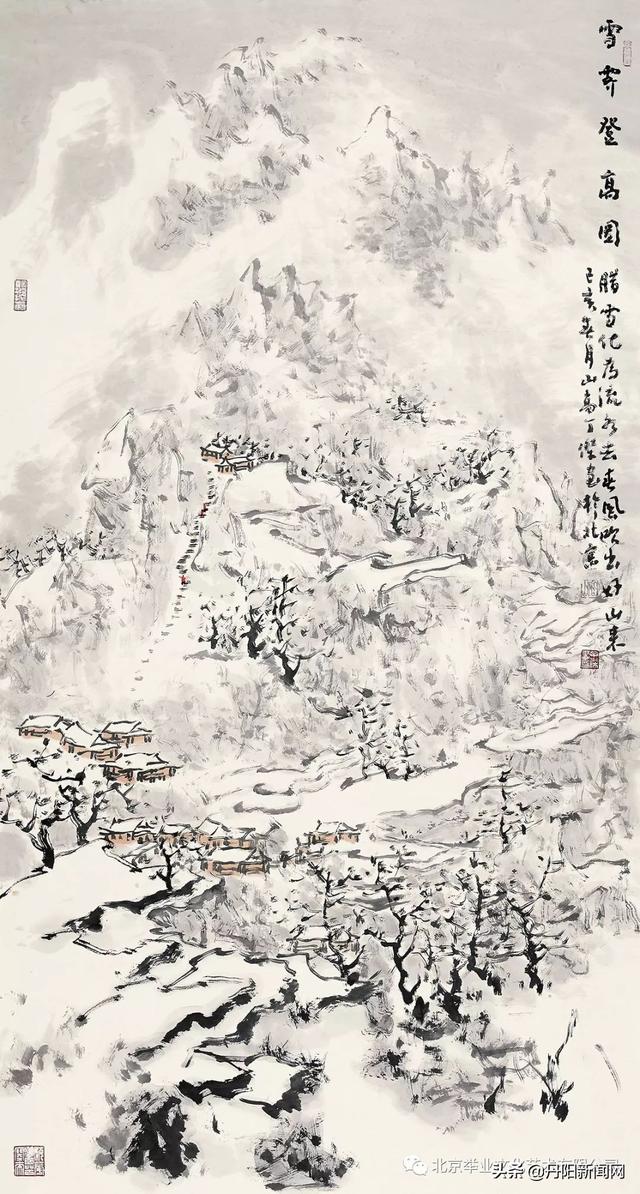 雪霁登高圖
腊雪化为流水去春风吹出好山来
己亥春月山高丁傑画於北京
北京举业文化艺术有限公司
头条 @丹阳新闻网